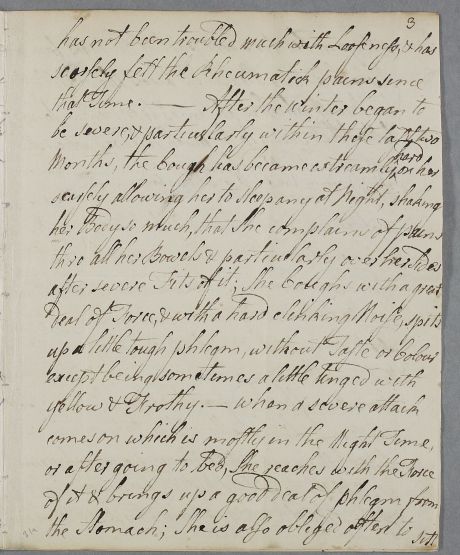 3
has not been troubled much with Looseness, & has
scarsely felt the Rheumatick pains since
that Time. — After the winter began to
be severe, & particularly within these last two
Months, the Cough has became extreamly hard on her
scarsely allowing her to sleep any at Night, shaking
her Body so much, that She complains of pains
thro all her Bowels & particularly over her Sides
after severe Fits of it; She Coughs with a great
Deal of Force, & with a hard clinking Noise, spits
up a little tough phlegm, without Taste or Colour
except being sometimes a little tinged with
yellow & Frothy. — When a severe attack
comes on which is mostly in the Night Time,
or after going to Bed, She reaches with the Force
of it & brings up a good deal of phlegm from
the Stomach; She is also obliged often to